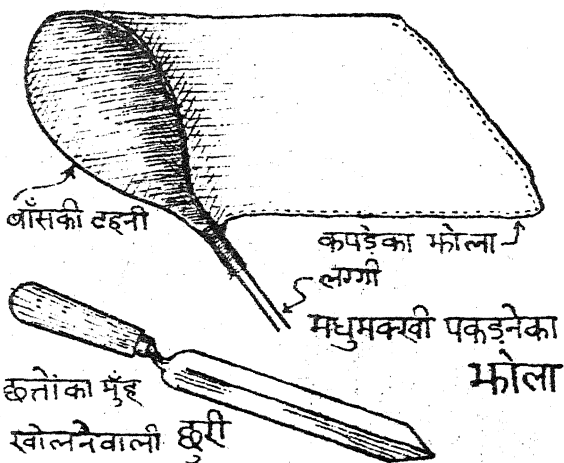 बाँसकी टहनी
कपड़ेका झोला
लग्गी
मधुमक्खी पकड़नेका
झोला
छत्तोंका मुँह
खोलनेवाली छुरी